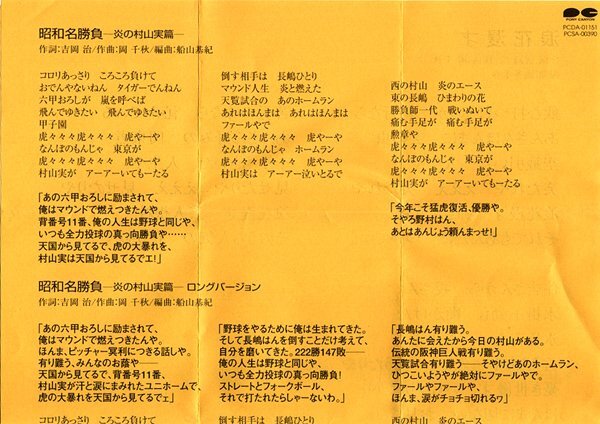 PONY CANYON
PCDA-01151
PCSA-00390
昭和名勝負—炎の村山実篇—
作詞：吉岡 治/作曲：岡 千秋/編曲：船山基紀
コロリあっさり ころころ負けて
おでんやないねん タイガーでんねん
六甲おろしが 嵐を呼べば
飛んでゆきたい 飛んでゆきたい
甲子園
虎々々虎々々 虎やーや
なんぼのもんじゃ 東京が
虎々々虎々々 虎やーや
村山実が アーアーいてもーたる
「あの六甲おろしに励まされて、
俺はマウンドで燃えつきたんや。
背番号11番、俺の人生は野球と同じや、
いつも全力投球の真っ向勝負や……
天国から見てるで、虎の大暴れを、
村山実は天国から見てるでエ!」
倒す相手は 長嶋ひとり
マウンド人生 炎と燃えた
天覧試合の あのホームラン
あれはほんまは あれはほんまは
ファールやで
虎々々虎々々 虎やーや
なんぼのもんじゃ ホームラン
虎々々虎々々 虎やーや
村山実は アーアー泣いとるで
西の村山 炎のエース
東の長嶋 ひまわりの花
勝負師一代 戦いぬいて
痛む手足が 痛む手足が
勲章や
虎々々虎々々 虎やーや
なんぼのもんじゃ 東京が
虎々々虎々々 虎やーや
村山実が アーアーいてもーたる
「今年こそ猛虎復活、優勝や。
そやろ野村はん、
あとはあんじょう頼んまっせ!」
昭和名勝負—炎の村山実篇— ロングバージョン
作詞：吉岡 治/作曲：岡 千秋/編曲：船山基紀
「あの六甲おろしに励まされて、
俺はマウンドで燃えつきたんや。
ほんま、ピッチャー冥利につきる話しや。
有り難う、みんなのお蔭や——
天国から見てるで、背番号11番、
村山実が汗と涙にまみれたユニホームで、
虎の大暴れを天国から見てるでェ」
「野球をやるために俺は生まれてきた。
そして長嶋はんを倒すことだけ考えて、
自分を磨いてきた。222勝147敗——
俺の人生は野球と同じや、
いつも全力投球の真っ向勝負!
ストレートとフォークボール、
それで打たれたらしゃーないわ。」
「長嶋はん有り難う。
あんたに会えたから今日の村山がある。
伝統の阪神巨人戦有り難う。
天覧試合有り難う——そやけどあのホームラン、
ひつこいようやが絶対にファールやで。
ファールやファールや、
ほんま、涙がチョチョ切れるヮ」
コロリあっさり ころころ負けて
倒す相手は 長嶋ひとり
西の村山 炎のエース